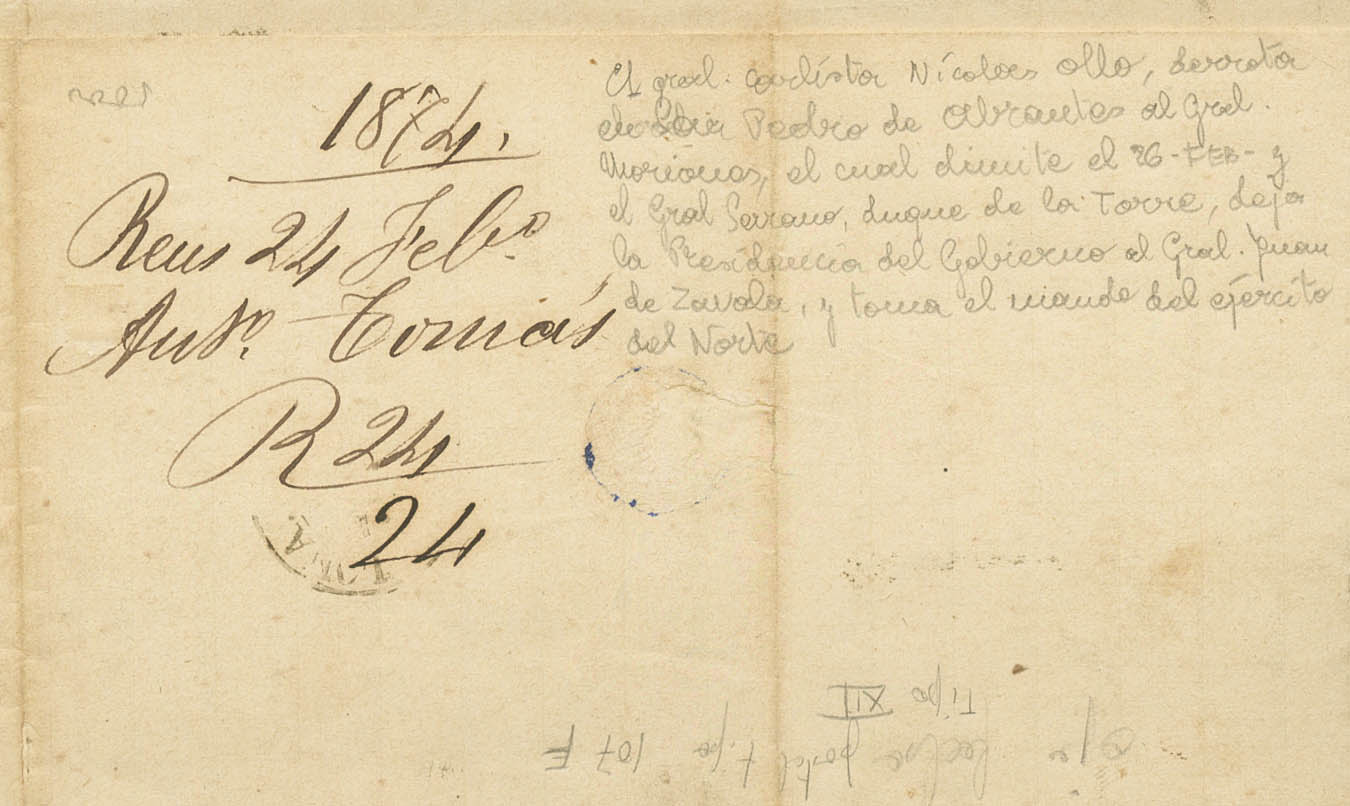 1874.
Reus 24 Febº
Antº Tomás
R 24
24
El gral. carlista Nicolas Ollo, derrota
en San Pedro de Abrantes al Gral.
Moriones, el cual dimite el 26-FEB- y
el Gral Serrano, duque de la Torre, deja
la Presidencia del Gobierno al Gral. Juan
de Zavala, y toma el mando del ejército
del Norte
Tipo XII
fechador postal tipo 107 F